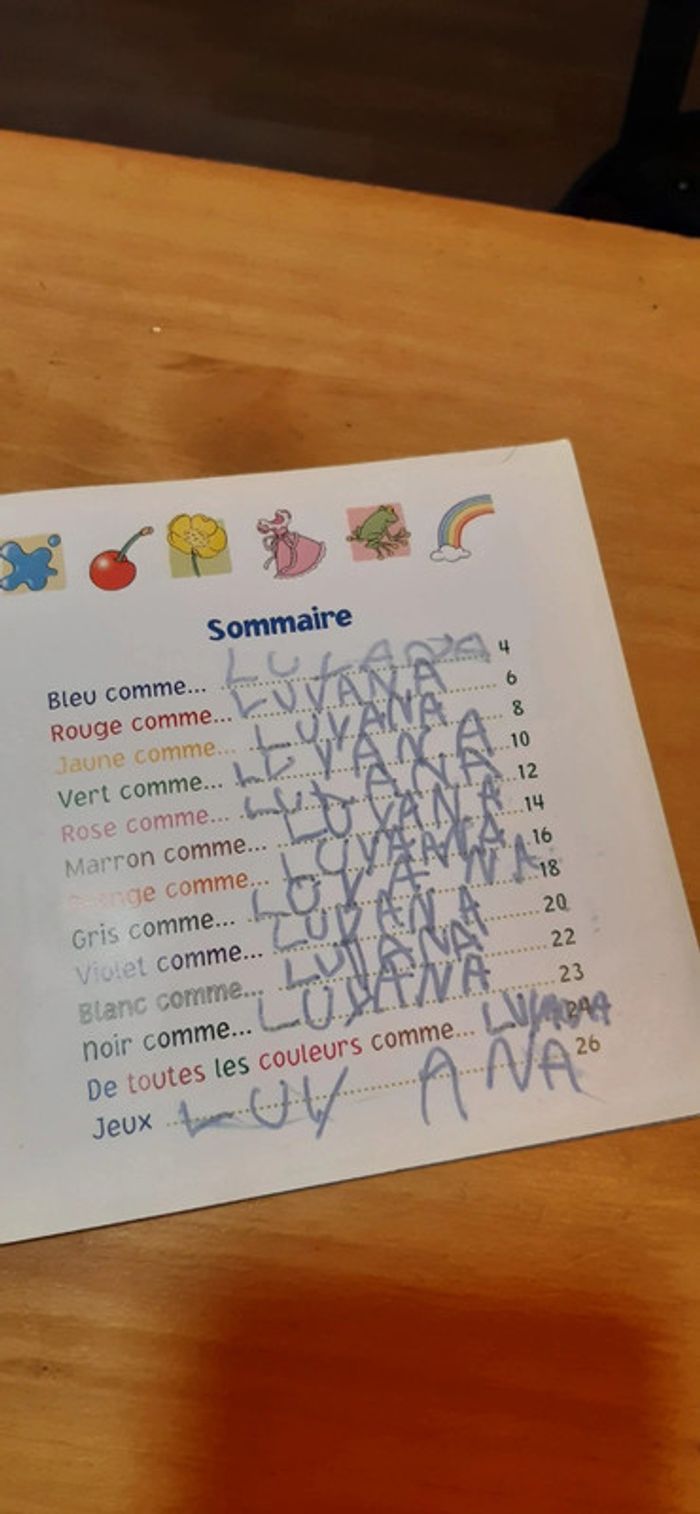 Sommaire
Bleu comme... LUVANA 4
Rouge comme... LUVANA 6
Jaune comme... LUVANA 8
Vert comme... LUVANA 10
Rose comme... LUVANA 12
Marron comme... LUVANA 14
Orange comme... LUVANA 16
Gris comme... LUVANA 18
Violet comme... LUVANA 20
Blanc comme... LUVANA 22
Noir comme... LUVANA 23
De toutes les couleurs comme... LUVANA 24
Jeux LUV ANA 26